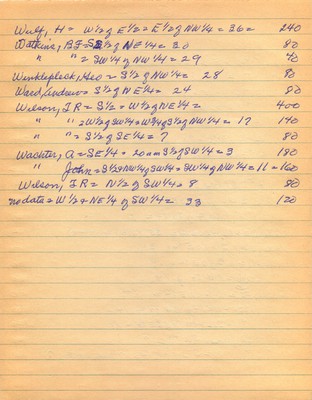 Wulf, H = W 1/2 of E 1/2 = E 1/2 of NW 1/4 = 36 = 240
Watkins, B.F = S 1/2 of NE 1/4 = 30 80
" " = SW 1/4 of NW 1/4 = 29 40
Winklepleck, Geo = S 1/2 of NW 1/4 = 28 80
Ward, Andrew = S 1/2 of NE 1/4 = 24 80
Wilson, I R = S 1/2 = W 1/2 of NE 1/4 = 400
" " = W 1/2 of SW 1/4 = W 1/4 of S 1/2 of NW 1/4 = 17 140
" " = S 1/2 of SE 1/4 = 7 80
Wachter, A = SE 1/4 = 20 am S 1/2 of SW 1/4 = 3 180
" John = S 1/2 of NW 1/4 of SW 1/4 = SW 1/4 of NW 1/4 = 11 = 160
Wilson, I R = N 1/2 of SW 1/4 = 8 80
no data = W 1/2 of NE 1/4 of SW 1/4 = 33 120